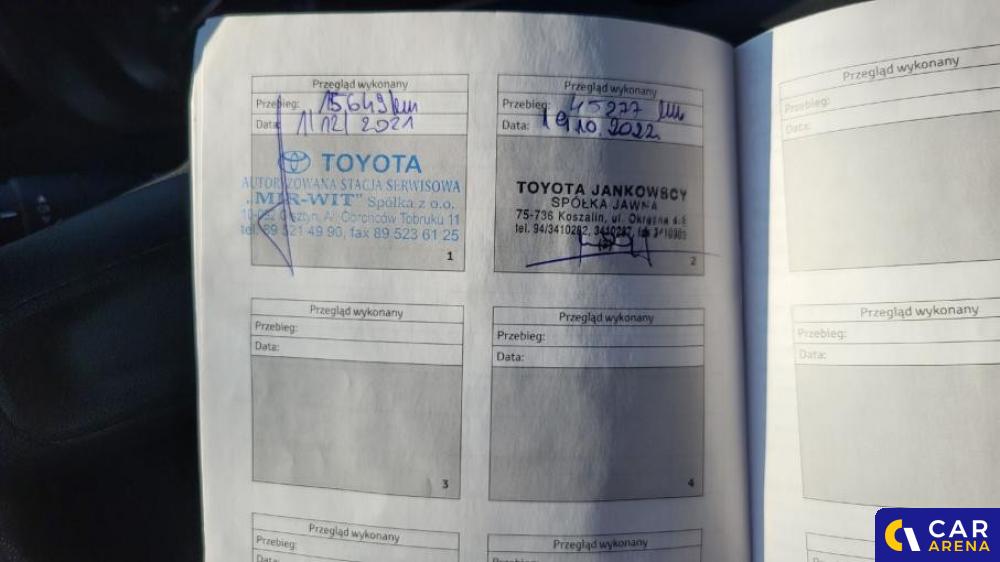 Przegląd wykonany
Przebieg: 15649 km
Data: 1/12/2021
TOYOTA
AUTORYZOWANA STACJA SERWISOWA
„MIR-WIT" Spółka z o.o.
Olsztyn, Al. Obrońców Tobruku 11
tel. 89 521 49 90, fax 89 523 61 25
1
Przegląd wykonany
Przebieg: 45277 km
Data: 19.10.2022
TOYOTA JANKOWSCY
SPÓŁKA JAWNA
75-736 Koszalin, ul.
tel. 94/3410282,
2
Przegląd wykonany
Przebieg:
Data:
Przegląd wykonany
Przebieg:
Data:
3
Przegląd wykonany
Przebieg:
Data:
4
Przegląd wykonany
Przebieg:
Data:
Przegląd wykonany
Przebieg:
Data:
Przegląd wykonany
Przebieg:
Przegląd wykonany
CAR
ARENA